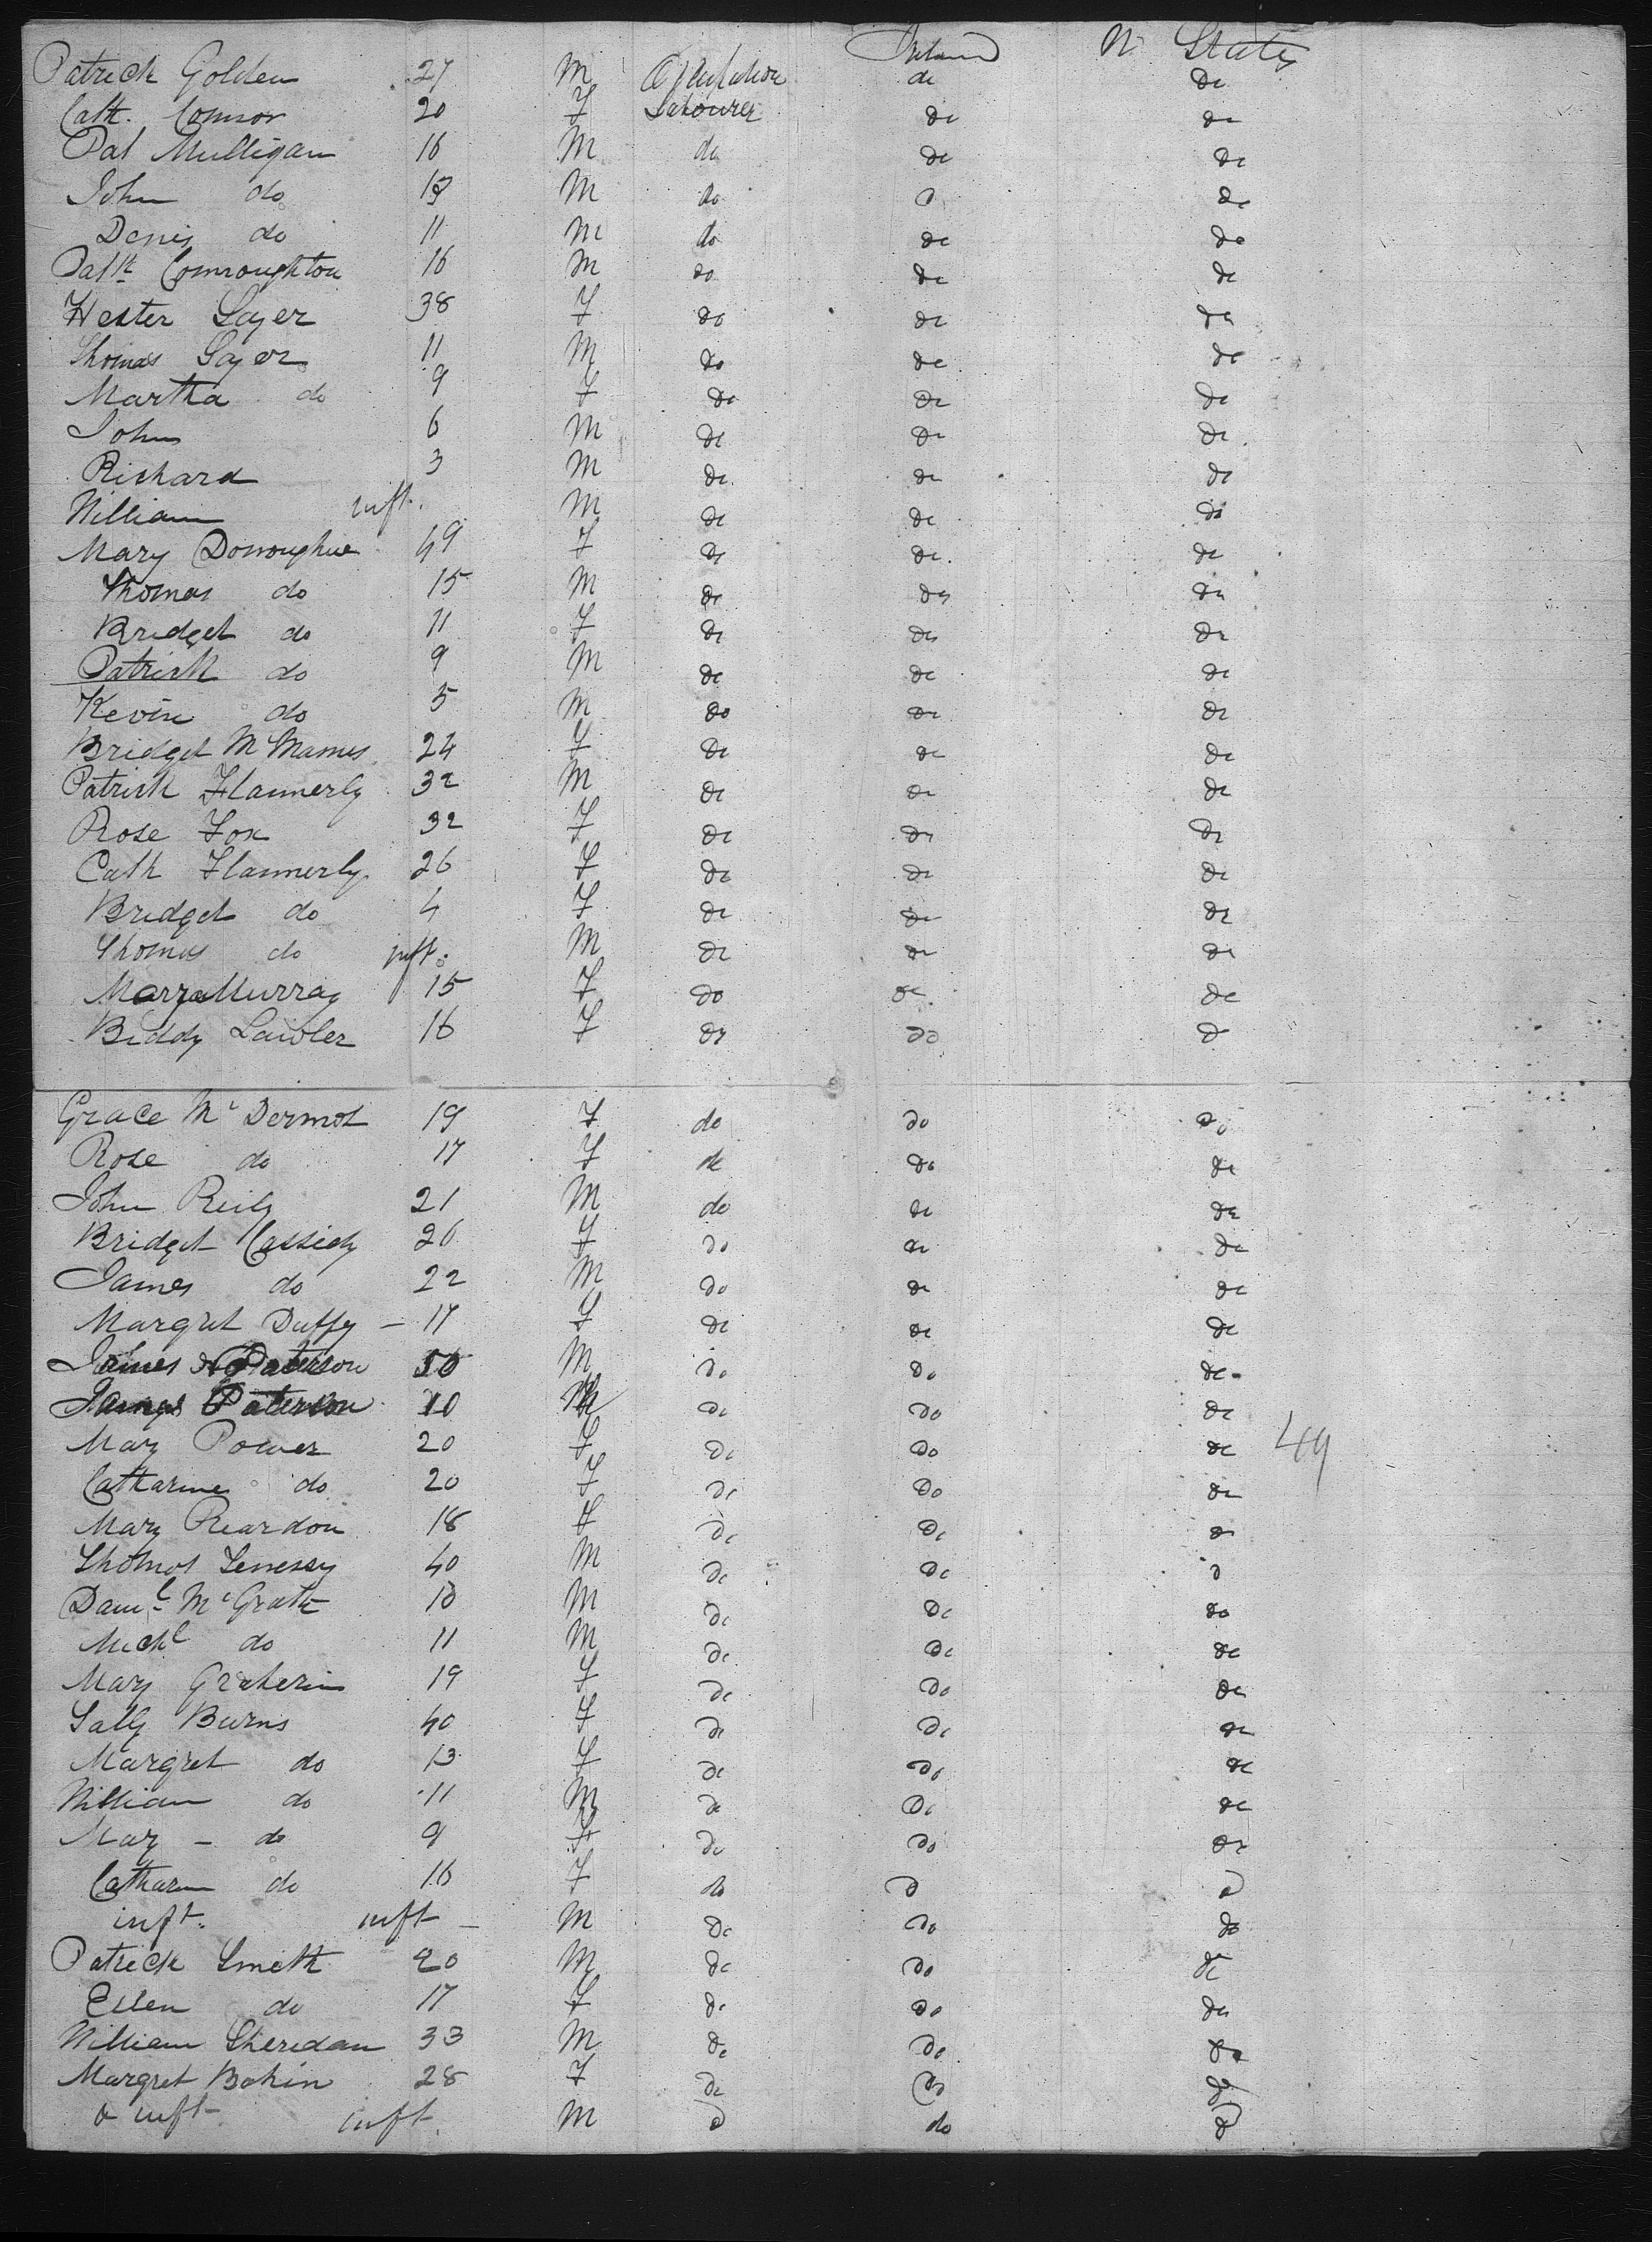 Ireland U States
Patrick Golden 27 M Occupation do do
Cath. Connor 20 F Labourer do do
Pat Mulligan 16 M do do do
John do 13 M do do do
Denis do 11 M do do do
Patk Conroughton 16 M do do do
Hester Sayer 38 F do do do
Thomas Sayer 11 M do do do
Martha do 9 F do do do
John 6 M do do do
Richard 3 M do do do
William inft. M do do do
Mary Donoughue 49 F do do do
Thomas do 15 M do do do
Bridget do 11 F do do do
Patrick do 9 M do do do
Kevin do 5 M do do do
Bridget McManus 24 F do do do
Patrick Flannerly 32 M do do do
Rose Fox 32 F do do do
Cath Flannerly 26 F do do do
Bridget do 4 F do do do
Thomas do inft. M do do do
Mary Murray 15 F do do do
Biddy Lawler 16 F do do do
Grace McDermot 19 F do do do
Rose do 17 F do do do
John Reily 21 M do do do
Bridget Cassidy 26 F do do do
James do 22 M do do do
Margret Duffy - 17 F do do do
James Paterson 50 M do do do
James Paterson 10 M do do do
Mary Power 20 F do do do 49
Catharine do 20 F do do do
Mary Reardon 18 F do do do
Thomas 40 M do do do
Danl McGrath 10 M do do do
Michl do 11 M do do do
Mary 19 F do do do
Sally Burns 40 F do do do
Margret do 13 F do do do
William do 11 M do do do
Mary - do 9 F do do do
Catharin do 16 F do do do
inft. inft - M do do do
Patrick Smith 20 M do do do
Ellen do 17 F do do do
William Sheridan 33 M do do do
Margret Bohin 28 F do do do
& inft inft. M do do do